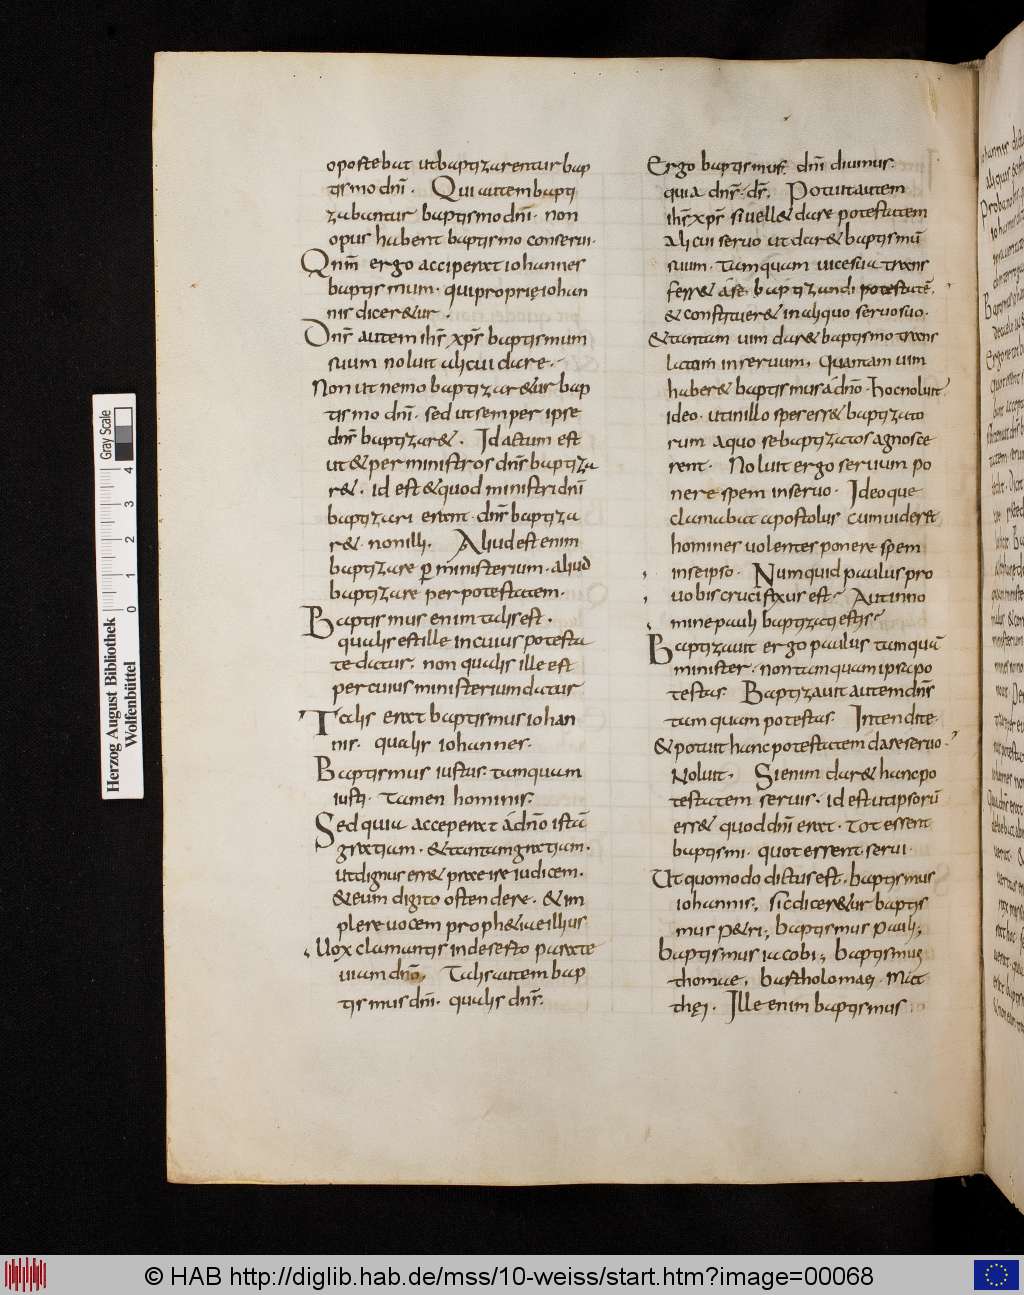 oportebat utbaptizarentur bap
tismo dn̄i. Qui autem bapti
zabantur baptismo dn̄i. non
opus habent baptismo conserui.
Qnm̄ ergo acciperent iohannes
baptismum. qui proprie iohan
nis diceretur.
Dn̄s autem ih̄s xp̄s baptismum
suum noluit alicui dare.
Non ut nemo baptizaretur bap
tismo dn̄i. sed ut semper ipse
dn̄s baptizaret. Id actum est
ut & per ministros dn̄s baptiza
ret. id est & quod ministri dn̄i
baptizari erant. dn̄s baptiza
ret. non illi. Aliud est enim
baptizare ꝑ ministerium. aliud
baptizare per potestatem.
Baptismus enim talis est.
qualis est ille in cuius potesta
te datur. non qualis ille est
per cuius ministerium datur
Talis erat baptismus iohan
nis. qualis iohannes.
Baptismus iustus. tamquam
iusti. Tamen hominis.
Sed quia acceperat a dn̄o istā
gratiam. & tantam gratiam.
ut dignus esset praeire iudicem.
& eum digito ostendere. & im
plere uocem prophetiae illius
Uox clamantis in deserto parate
uiam dn̄o. Talis autem bap
tismus dn̄i. qualis dn̄s.
Ergo baptismus dn̄i diuinus.
quia dn̄s. ds̄. Potuit autem
ih̄s xp̄s si uellet dare potestatem
alicui seruo ut daret baptismū
suum. tamquam uice sua trans
ferret a se baptizandi potestatē.
& constitueret in aliquo seruo suo.
& tantam uim daret baptismo trans
latam in seruum. quantam uim
haberet baptismus a dn̄o. hoc noluit
ideo. ut in illo spes esset baptizato
rum a quo se baptizatos agnosce
rent. Noluit ergo seruum po
nere spem in seruo. Ideoque
clamabat apostolus cum uideret
homines uolentes ponere spem
in se ipso. Numquid paulus pro
uobis crucifixus est? Aut in no
mine pauli baptizati estis?
Baptizauit ergo paulus tamquā
minister. non tamquam ipsa po
testas. Baptizauit autem dn̄s
tamquam potestas. Intendite.
& potuit hanc potestatem dare seruo.
Noluit. Si enim daret hanc po
testatem seruis. id est ut ipsorū
esset quod dn̄i erat. tot essent
baptismi. quot essent serui.
Ut quomodo dictus est. baptismus
iohannis, sic diceretur baptis
mus petri; baptismus pauli;
baptismus iacobi; baptismus
thomae, bartholomaei. mat
thęi. Ille enim baptismus
Herzog August Bibliothek
Wolfenbüttel
0 1 2 3 4
Gray Scale
© HAB http://diglib.hab.de/mss/10-weiss/start.htm?image=00068